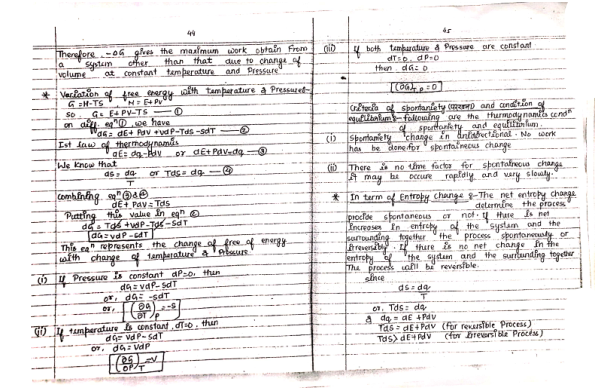 44
Therefore -ΔG gives the maximum work obtain from
a system other than that due to change of
volume at constant temperature and Pressure
* Variation of free energy with temperature & Pressure:-
G = H-TS H = E+PV
so, G = E+PV-TS — ①
on diff. eqⁿ ①, we have
dG = dE+PdV+VdP-TdS-SdT — ②
Ist law of thermodynamics
dE = dq-PdV or dE+PdV=dq — ③
We know that
ds = dq/T or Tds = dq — ④
combining eqⁿ ③ & ④
dE + PdV = Tds
Putting this value in eqⁿ ②
dG = Tds +VdP -Tds -SdT
dG = VdP-SdT
This eqⁿ represents the change of free of energy
with change of temperature & Pressure
(i) If Pressure is constant dP=0, then
dG = VdP-SdT
or, dG = -SdT
[(∂G/∂T)P = -S]
(ii) If temperature is constant, dT=0, then
dG = VdP-SdT
or, dG = VdP
[(∂G/∂P)T = V]
45
(iii) If both temperature & Pressure are constant
dT=0, dP=0
then dG = 0
[(∂G)T,P = 0]
Criteria of spontaniety and condition of
equilibrium:- following are the thermodynamics condⁿ
of spontaniety and equilibrium.
(i) Spontaniety change in unidirectional. No work
has be done for spontaineous change
(ii) There is no time factor for spontaineous change
It may be occure rapidly and very slowly.
* In term of Entropy change :- The net entropy change
determine the process
procide spontaneous or not. If there is net
increases in entroby of the system and the
surrounding together the process spontaneously or
irreversible. If there is no net change in the
entropy of the system and the surrounding together
The process will be reversible.
since
ds = dq/T
or, Tds = dq
& dq = dE + PdV
Tds = dE+PdV (for reversible Process)
Tds > dE+PdV (for Irreversible Process)